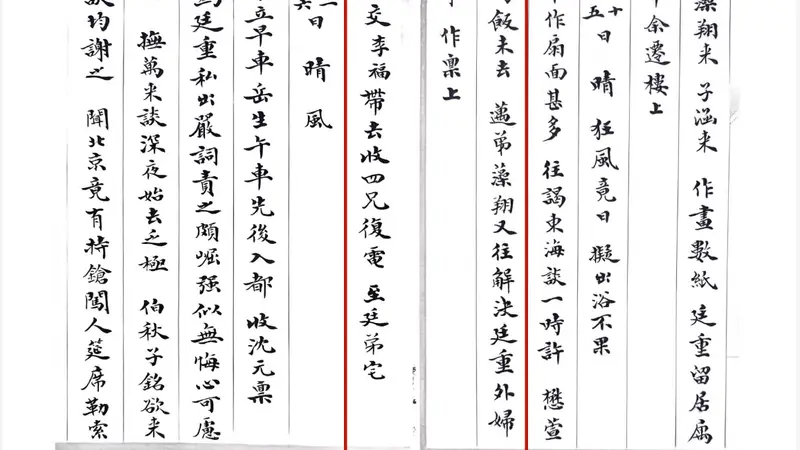 藻翔来 子涵来 作畫數紙 廷重留居扃
余遷樓上
十五日 晴 狂風竟日 擬出浴不果
作扇面甚多 往謁東海談一時許 懋萱
飯未去 邁弟藻翔又往解決廷重外婦
作禀上
交李福帶去收四兄復電 至廷弟宅
日 晴 風
立早車岳生午車先後入都 收沈元禀
廷重私出嚴詞責之頗崛强似無悔心可慮
撫萬来談深夜始去乏極 伯秋子銘欲来
均謝之 聞北京竟有持鎗闖人筵席勒索